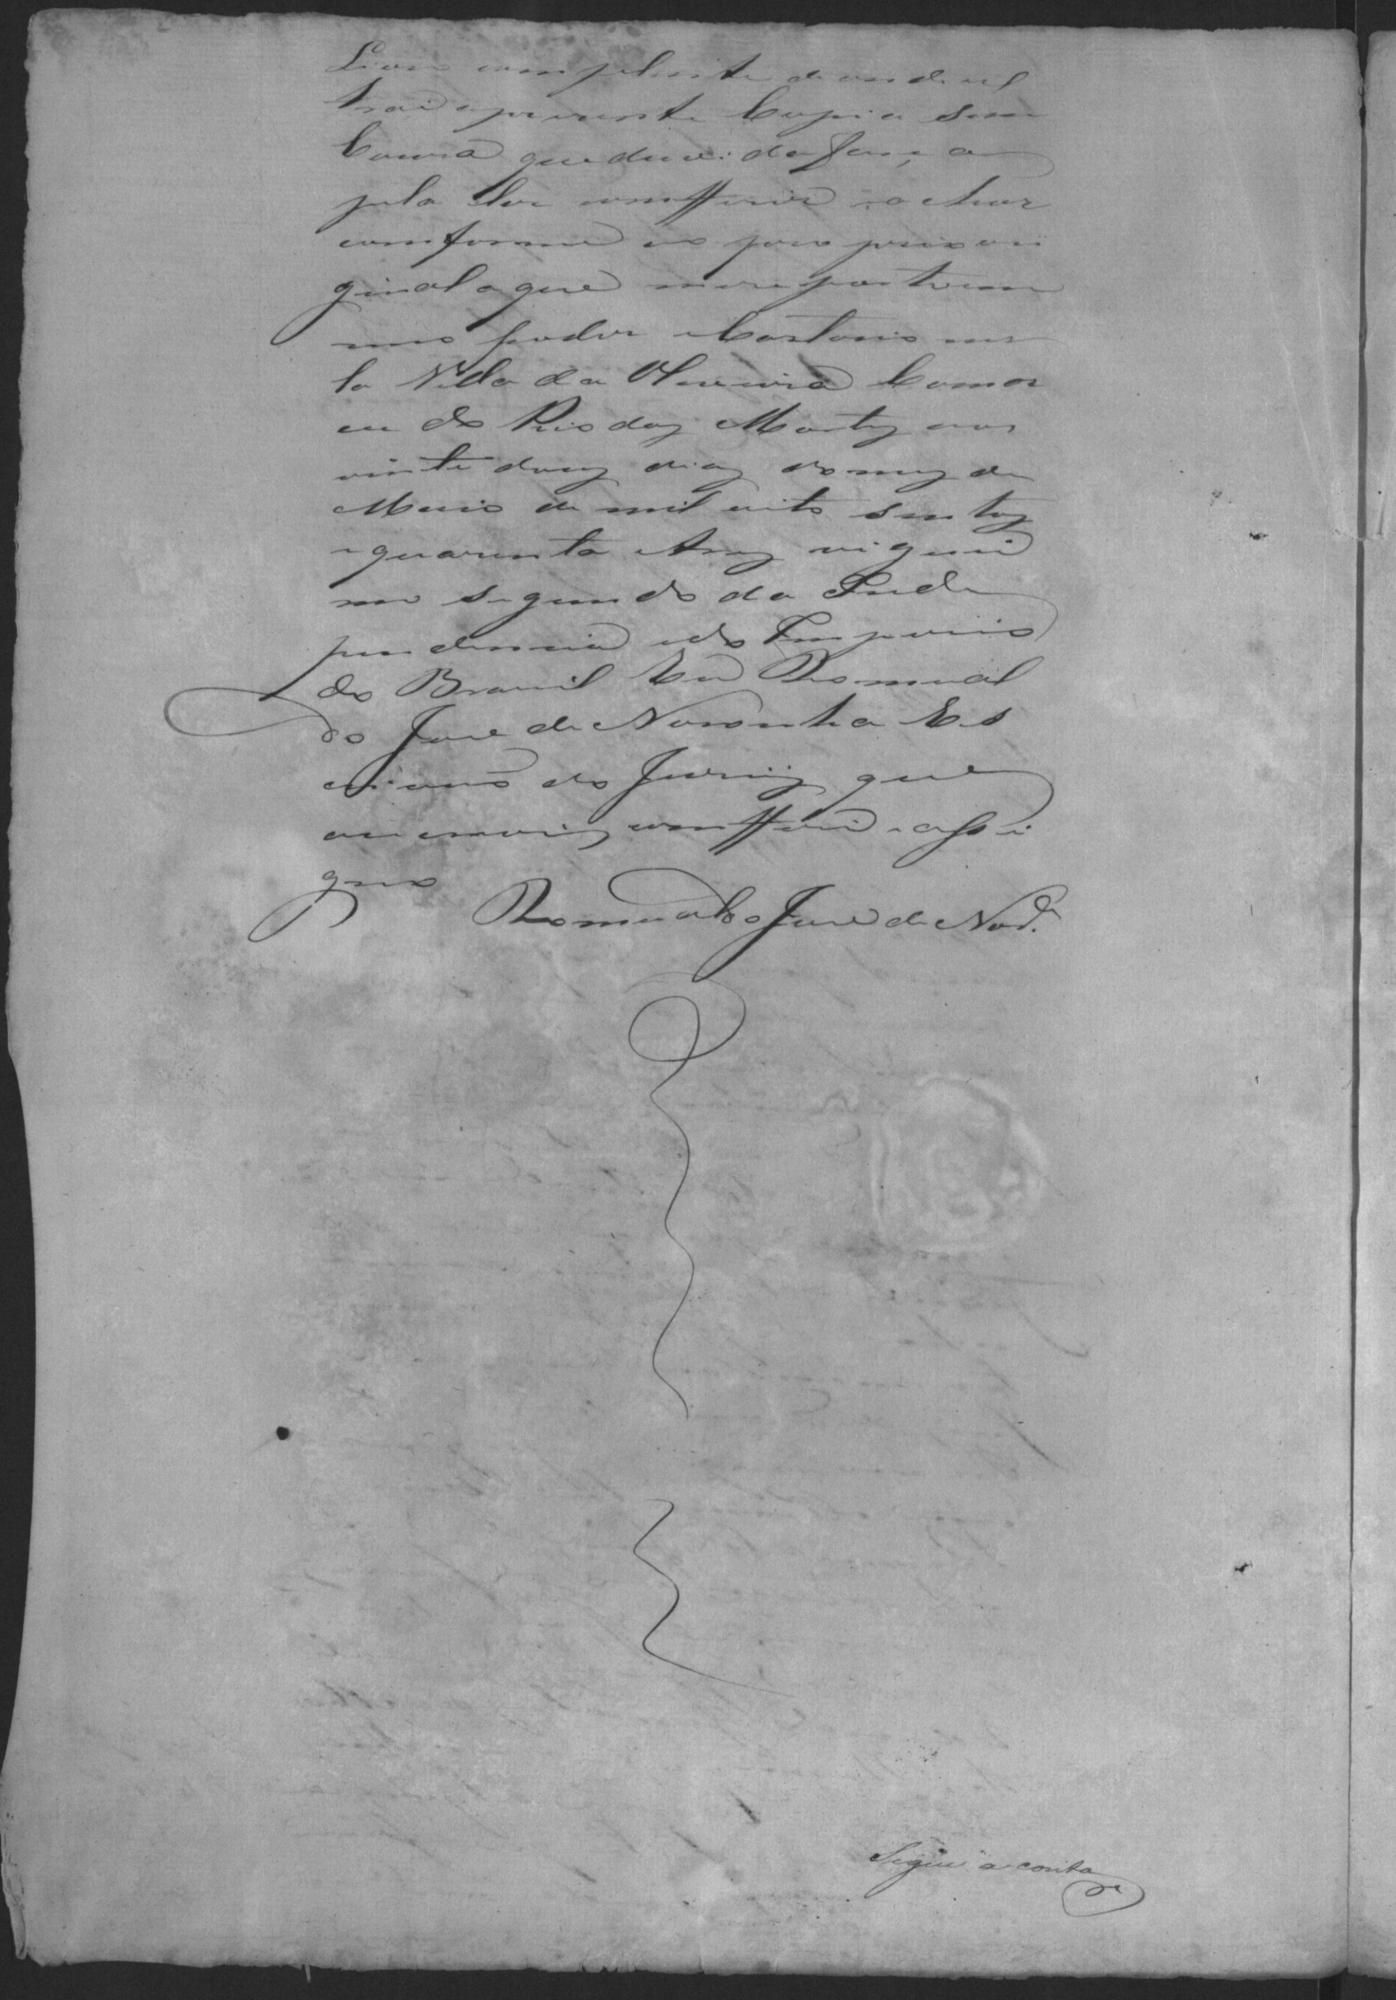 Livro competente de onde ex
trai a presente Copia sem
Cousa que duvida faça
pela ler conferir e achar
conforme ao proprio ori
ginal a que me reporto em
meo poder e Cartorio nes
ta Villa da Oliveira Comar
ca do Rio das Mortes aos
vinte dous dias do mez de
Maio de mil oito sentos
e quarenta Annos vigesi
mo segundo da Inde
pendencia e do Imperio
do Brasil Eu Romual
do Jose de Noronha Es
crivaõ do Juizo que
o escrevi, conferi e assi
gno
Romualdo Jose de Nor.ª
Segue a conta